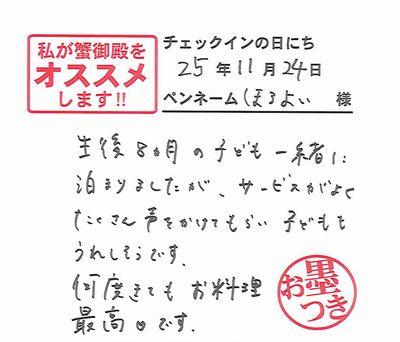 私が蟹御殿を
オススメ
します!!
チェックインの日にち
25年11月24日
ペンネーム ほろよい 様
生後8ヵ月の子ども一緒に
泊まりましたが、サービスがよく
たくさん声をかけてもらい 子どもも
うれしそうです。
何度きても お料理
最高♡です。
お墨
つき